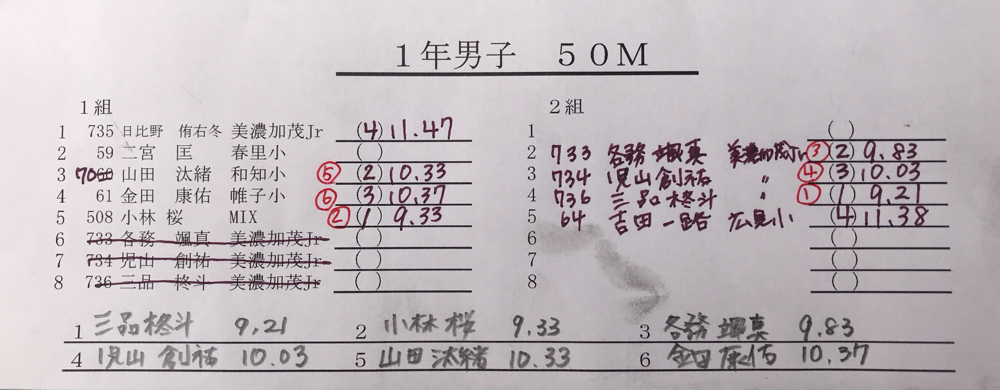 1年男子 50M
1組
1 735 日比野 侑右冬 美濃加茂Jr (4) 11.47
2 59 二宮 匡 春里小 ( )
3 7060 山田 汰緒 和知小 ⑤ (2) 10.33
4 61 金田 康佑 帷子小 ⑥ (3) 10.37
5 508 小林 桜 MIX ② (1) 9.33
6 733 各務 颯真 美濃加茂Jr ( )
7 734 児山 創祐 美濃加茂Jr ( )
8 736 三品 柊斗 美濃加茂Jr ( )
2組
1 ( )
2 733 各務 颯真 美濃加茂Jr ③ (2) 9.83
3 734 児山 創祐 〃 ④ (3) 10.03
4 736 三品 柊斗 〃 ① (1) 9.21
5 64 吉田 広見小 (4) 11.38
6 ( )
7 ( )
8 ( )
1 三品柊斗 9.21 2 小林桜 9.33 3 各務颯真 9.83
4 児山創祐 10.03 5 山田汰緒 10.33 6 金田康佑 10.37